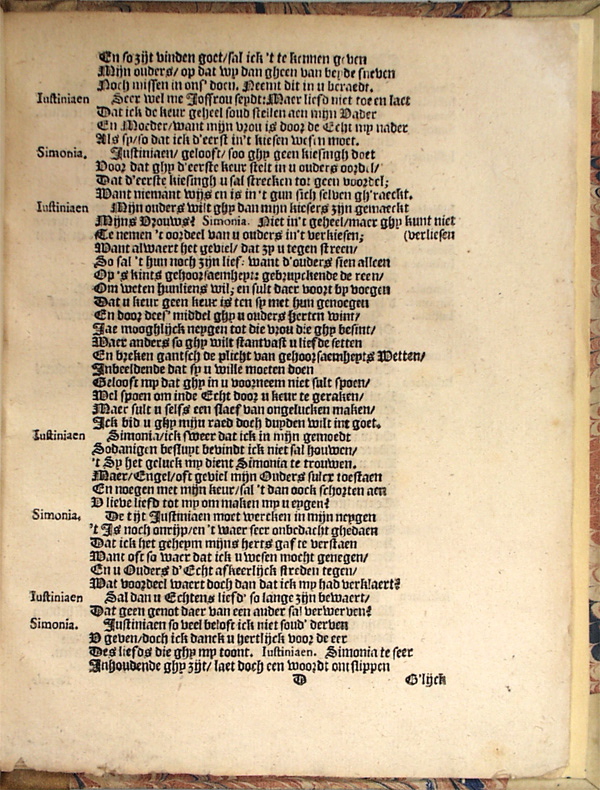 En so zijt vinden goet/sal ick 't te kennen geven
Mijn ouders/ op dat wy dan gheen van beyde sneven
Noch missen in ons' doen. Neemt dit in u beraedt.
Iustiniaen Seer wel me Joffrou seydt: Maer liefd niet toe en laet
Dat ick de keur geheel soud stellen aen mijn Vader
En Moeder/want mijn vrou is door de Echt my nader
Als sy/so dat ick d'eerst in't kiesen wesen moet.
Simonia. Justiniaen/ gelooft/ soo ghy geen kiesingh doet
Voor dat ghy d'eerste keur stelt in u ouders oordel/
Dat d'eerste kiesingh u sal strecken tot geen voordel;
Want niemant wijs en is in 't gun sich selven gh'raeckt.
Iustiniaen Mijn ouders wilt ghy dan mijn kiesers zijn gemaeckt
Mijns Vrouws? Simonia. Niet in't geheel/maer ghy kunt niet
Te nemen 't oordeel van u ouders in't verkiesen; (verliesen
Want alwaert het geviel/ dat zy u tegen streen/
So sal 't hun noch zijn lief: want d'ouders sien alleen
Op 's kints gehoorsaemheyt: gebruyckende de reen/
Om weten hunliens wil; en sult daer voort by voegen
Dat u keur geen keur is ten sy met hun genoegen
En door dees' middel ghy u ouders herten wint/
Jae mooghlijck neygen tot die vrou die ghy besint/
Waer anders so ghy wilt stantvast u liefde setten
En breken gantsch de plicht van gehoorsaemheyts Wetten/
Inbeeldende dat sy u wille moeten doen
Gelooft my dat ghy in u voorneem niet sult spoen/
Wel spoen om inde Echt door u keur te geraken/
Maer sult u selfs een slaef van ongelucken maken/
Ick bid u ghy mijn raed doch duyden wilt int goet.
Iustiniaen Simonia/ick sweer dat ick in mijn gemoedt
Sodanigen besluyt bevindt ick niet sal houwen/
't Sy het geluck my dient Simonia te trouwen.
Maer/Engel/oft geviel mijn Ouders sulcx toestaen
En noegen met mijn keur/sal 't dan oock schorten aen
V lieve liefd tot my om maken my u eygen?
Simonia. De tijt Justiniaen moet wercken in mijn neygen
't Is noch onrijp/en 't waer seer onbedacht ghedaen
Dat ick het geheym mijns herts gaf te verstaen
Want oft so waer dat ick u wesen mocht genegen/
En u Ouders d'Echt afkeerlijck streden tegen/
Wat voordeel waert doch dan dat ick my had verklaert?
Iustiniaen Sal dan u Echtens liefd' so lange zijn bewaert/
Dat geen genot daer van een ander sal verwerven?
Simonia. Justiniaen so veel beloft ick niet soud' derven
V geven/doch ick danck u hertlijck voor de eer
Des liefds die ghy my toont. Iustiniaen. Simonia te seer
Inhoudende ghy zijt/ laet doch een woordt ontslippen
D G'lijck